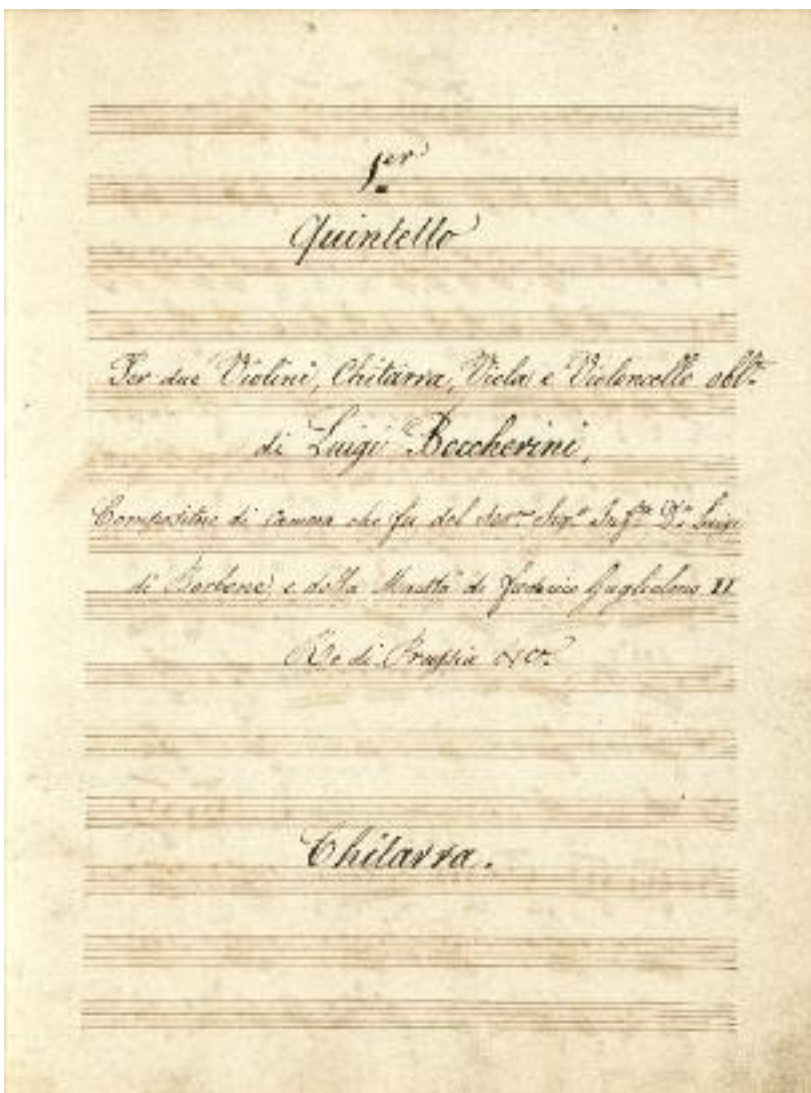 1.er
Quintetto
Per due Violini, Chitarra, Viola e Violoncello obl.to
di Luigi Boccherini,
Compositore di camera che fu del Ser.mo Sig.r Inf.te D.n Luigi
di Borbone, e della Maestà di Federico Guglielmo II
Re di Prussia
Chitarra.